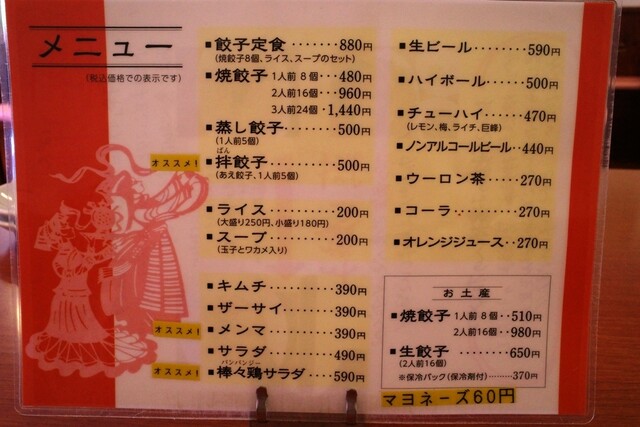 メニュー
(税込価格での表示です)
■餃子定食‥‥‥880円
(焼餃子8個、ライス、スープのセット)
■焼餃子 1人前 8個‥480円
2人前16個‥960円
3人前24個‥1,440円
■蒸し餃子‥‥‥500円
(1人前5個)
オススメ!
ばん
■拌餃子‥‥‥500円
(あえ餃子、1人前5個)
■ライス‥‥‥200円
(大盛り250円、小盛り180円)
■スープ‥‥‥200円
(玉子とワカメ入り)
■キムチ‥‥‥390円
■ザーサイ‥‥‥390円
オススメ!
■メンマ‥‥‥390円
■サラダ‥‥‥490円
オススメ!
バンバンジー
■棒々鶏サラダ‥‥590円
■生ビール‥‥‥590円
■ハイボール‥‥‥500円
■チューハイ‥‥‥470円
(レモン、梅、ライチ、巨峰)
■ノンアルコールビール‥440円
■ウーロン茶‥‥‥270円
■コーラ‥‥‥270円
■オレンジジュース‥270円
お土産
■焼餃子 1人前 8個‥510円
2人前16個‥980円
■生餃子‥‥‥650円
(2人前16個)
※保冷パック(保冷剤付)‥‥‥370円
マヨネーズ60円